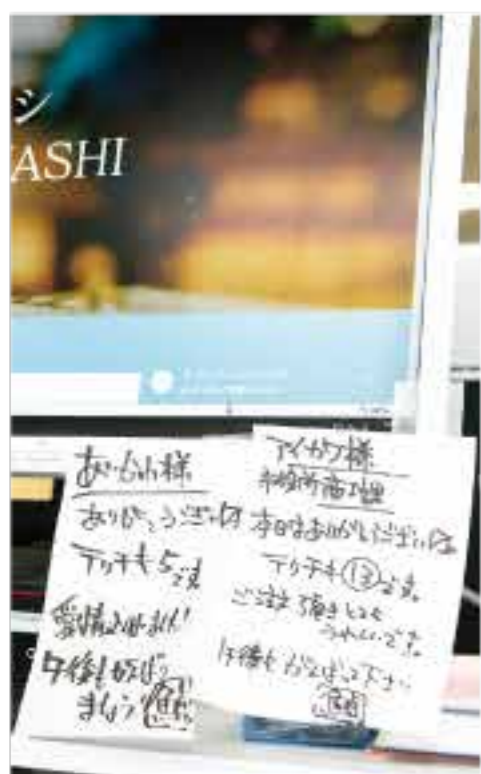 シ
ASHI
様
ありがとうございます
テリチキ5です
愛情込めました!
午後もがんばり
ましょう
アイカワ様
商工課
本日はありがとうございます
テリチキ⑬です。
ご注文頂きとても
うれしいです。
午後もがんばって下さい